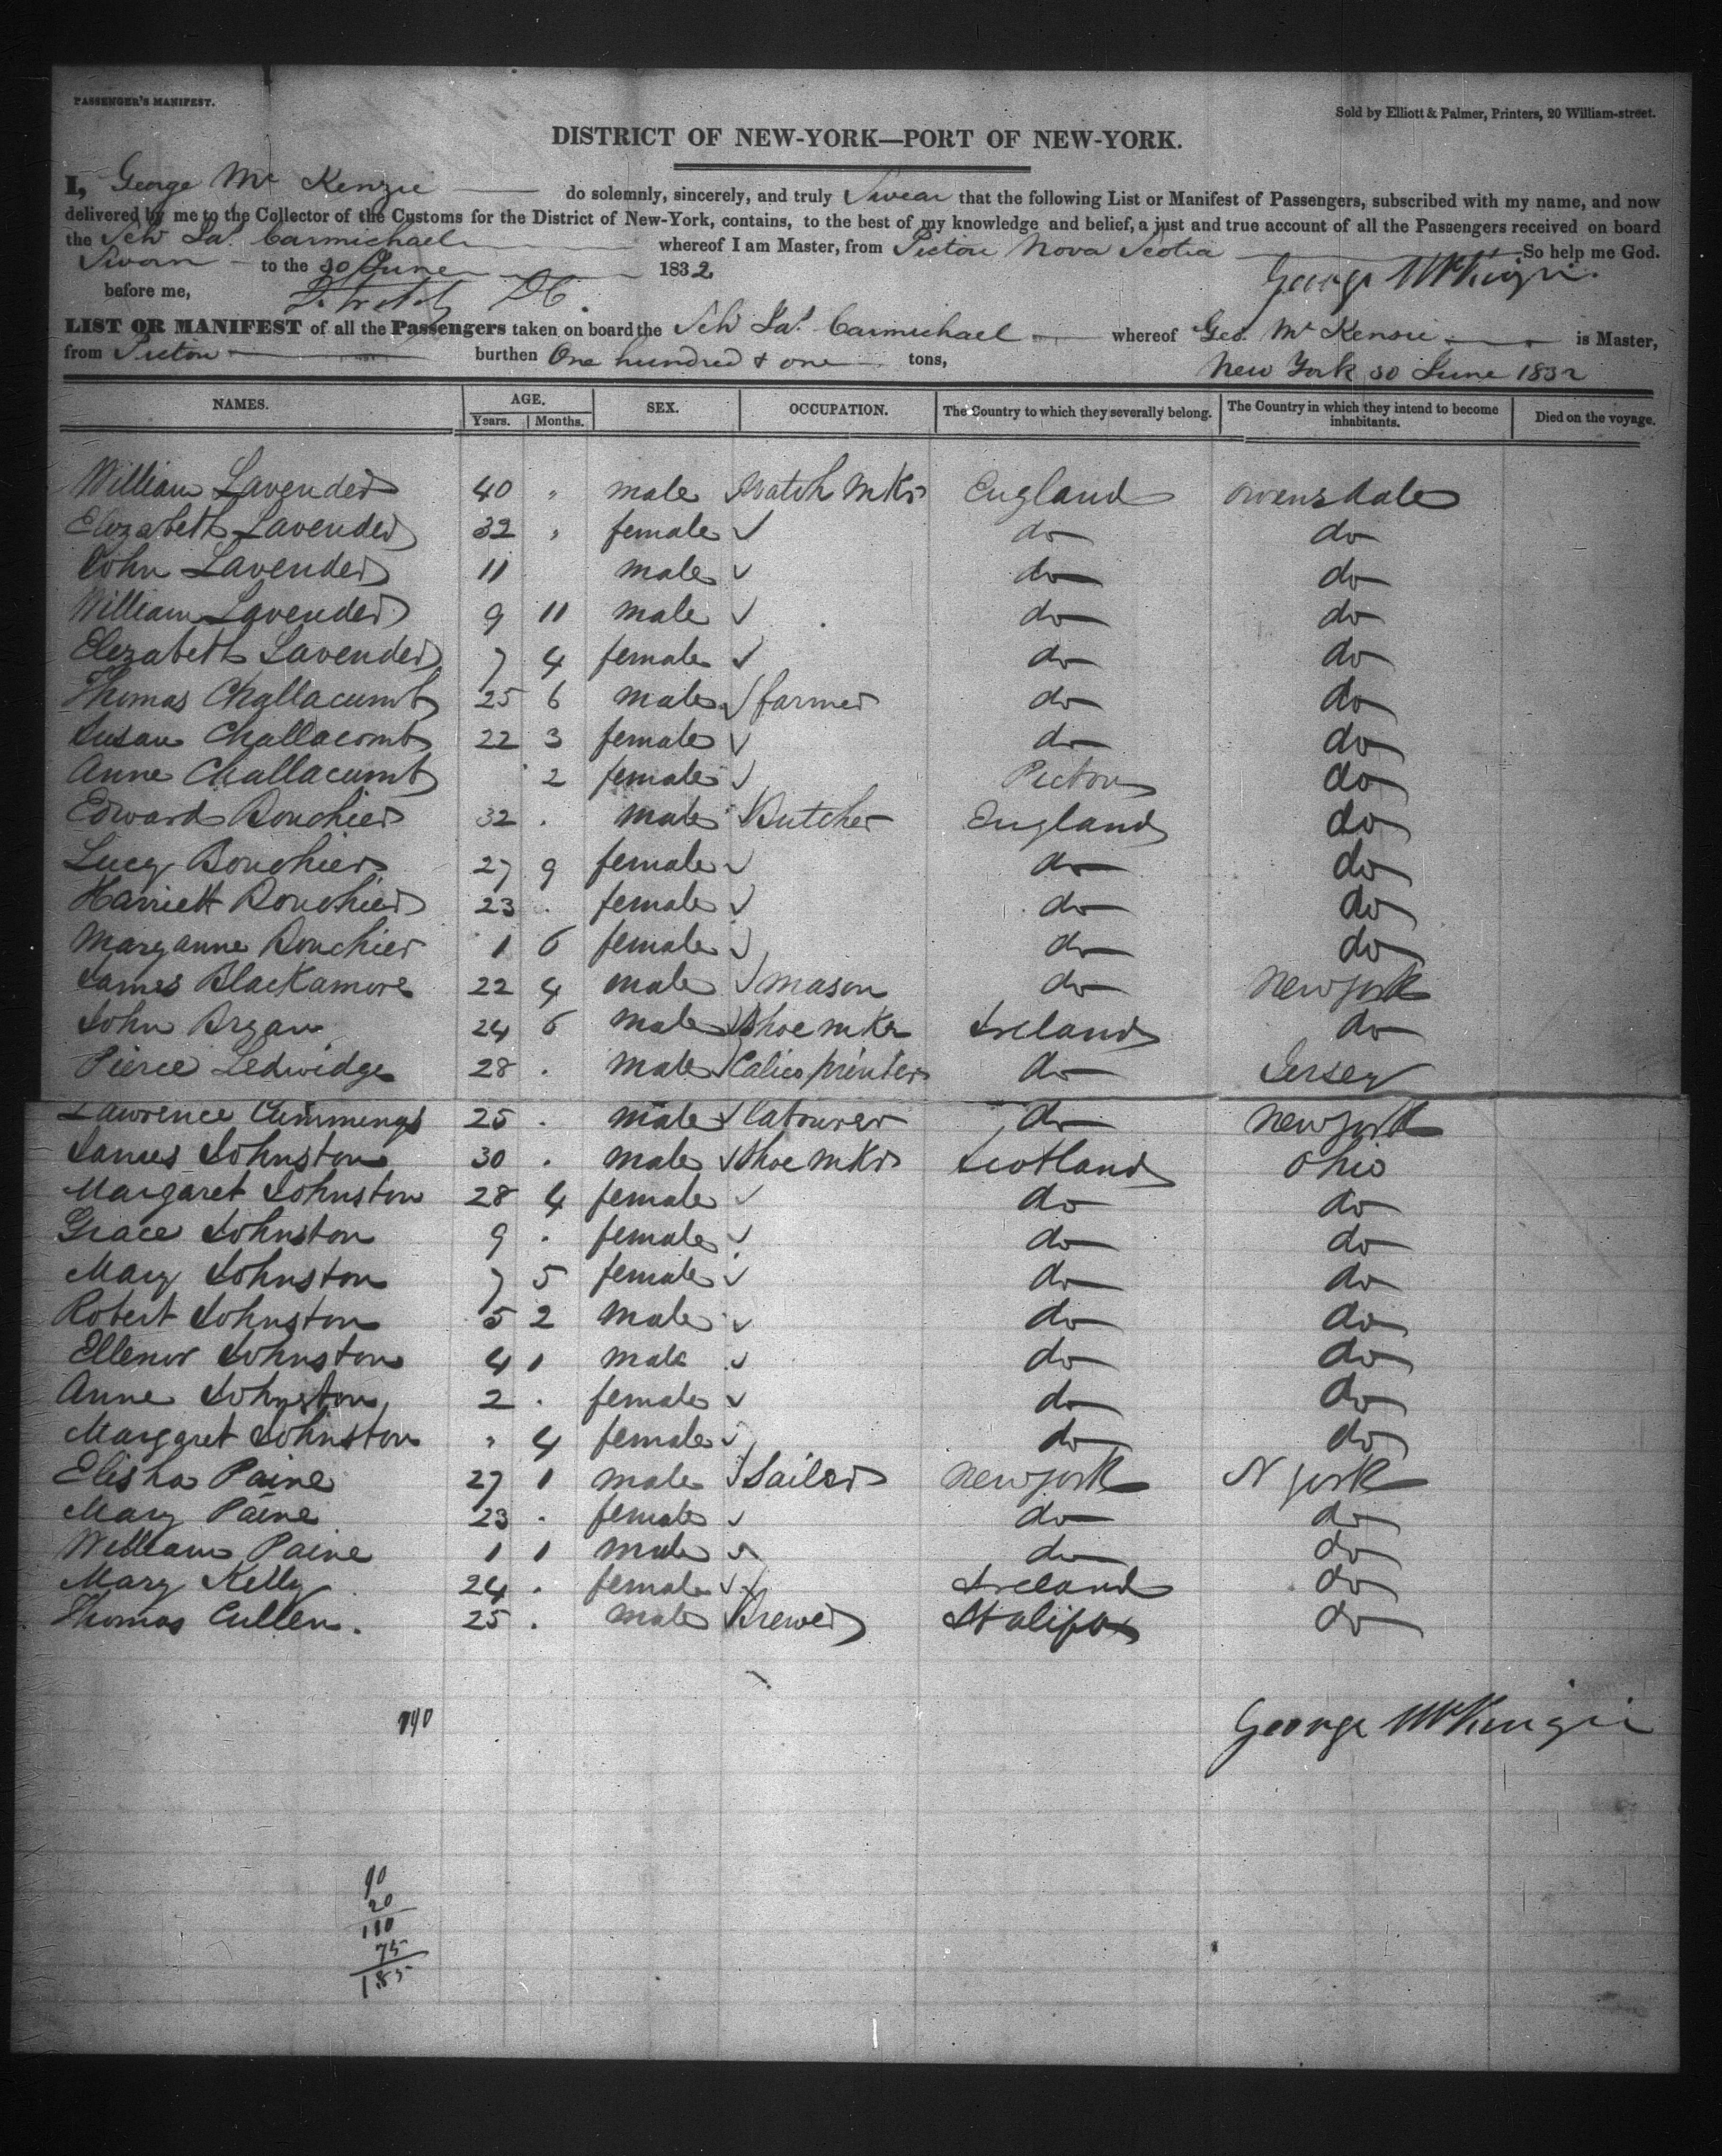 PASSENGER'S MANIFEST.
Sold by Elliott & Palmer, Printers, 20 William-street.
DISTRICT OF NEW-YORK—PORT OF NEW-YORK.
I, George Mc Kenzie do solemnly, sincerely, and truly Swear that the following List or Manifest of Passengers, subscribed with my name, and now
delivered by me to the Collector of the Customs for the District of New-York, contains, to the best of my knowledge and belief, a just and true account of all the Passengers received on board
the Schr Jas. Carmichael whereof I am Master, from Pictou Nova Scotia So help me God.
Sworn to the 30 June 1832 George McKenzie
before me,
LIST OR MANIFEST of all the Passengers taken on board the Schr Jas. Carmichael whereof Geo. Mc Kensie is Master,
from Pictou burthen One hundred & one tons, New York 30 June 1832
NAMES. AGE. SEX. OCCUPATION. The Country to which they severally belong. The Country in which they intend to become inhabitants. Died on the voyage.
Years. Months.
William Lavender 40 " male Watch Mkr England Owensdale
Elizabeth Lavender 32 " female do do
John Lavender 11 male do do
William Lavender 9 11 male do do
Elezabeth Lavender 7 4 female do do
Thomas Challacumb 25 6 male farmer do do
Susan Challacomb 22 3 female do do
Anne Challacumb 2 female Pictou do
Edward Bouchier 32 . male Butcher England do
Lucy Bouchier 27 9 female do do
Harriett Bouchier 23 . female do do
Maryanne Bouchier 1 6 female do do
James Blackamore 22 4 male mason do New york
John Bryan 24 6 male Shoe mkr Ireland do
Pierce Ledwidge 28 . male Calico printer do Jersey
Lawrence Cummings 25 . male labourer do New york
James Johnston 30 . male Shoe mkr Scotland Ohio
Margaret Johnston 28 4 female do do
Grace Johnston 9 . female do do
Mary Johnston 7 5 female do do
Robert Johnston 5 2 male do do
Ellenor Johnston 4 1 male do do
Anne Johnston 2 . female do do
Margaret Johnston " 4 female do do
Elisha Paine 27 1 male Sailor New york N york
Mary Paine 23 . female do do
William Paine 1 1 male do do
Mary Kelly 24 . female Ireland do
Thomas Cullen. 25 . male Brewer Halifax do
George McKenzie
90
20
110
75
185